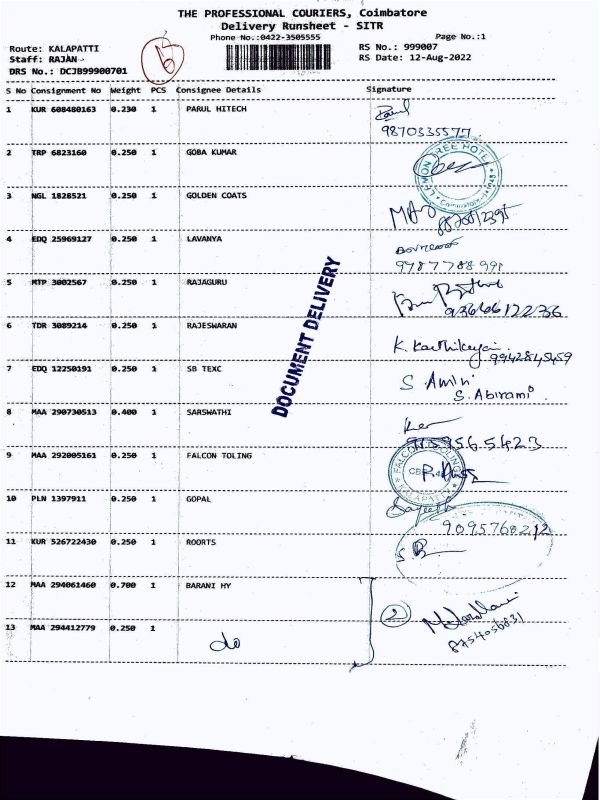 THE PROFESSIONAL COURIERS, Coimbatore
Delivery Runsheet - SITR
Phone No.:0422-3505555 Page No.:1
Route: KALAPATTI RS No.: 999007
Staff: RAJAN RS Date: 12-Aug-2022
DRS No.: DCJB99900701
S No Consignment No Weight PCS Consignee Details Signature
1 KUR 608480163 0.230 1 PARUL HITECH
9870335577
2 TRP 6823160 0.250 1 GOBA KUMAR
LEMON TREE HOTEL
3 NGL 1828521 0.250 1 GOLDEN COATS
4 EDQ 25969127 0.250 1 LAVANYA
9787788991
5 MTP 3002567 0.250 1 RAJAGURU
DOCUMENT DELIVERY
6 TDR 3089214 0.250 1 RAJESWARAN
K. Karthikeyan
7 EDQ 12250191 0.250 1 SB TEXC
S Amini
S. Abirami
8 MAA 290730513 0.400 1 SARSWATHI
9 MAA 292005161 0.250 1 FALCON TOLING
FALCON TOOLING
KALAPATTI
10 PLN 1397911 0.250 1 GOPAL
11 KUR 526722430 0.250 1 ROORTS
12 MAA 294061460 0.700 1 BARANI HY
2
8754056831
13 MAA 294412779 0.250 1 do